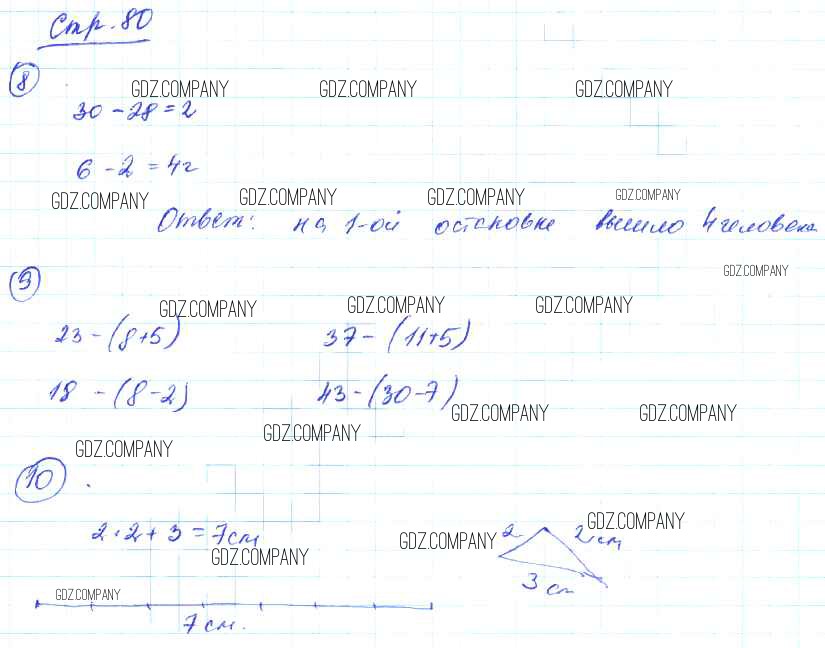 Стр. 80
8
GDZ.COMPANY GDZ.COMPANY GDZ.COMPANY
30 - 28 = 2
6 - 2 = 4г
GDZ.COMPANY GDZ.COMPANY GDZ.COMPANY GDZ.COMPANY
Ответ: на 1-ой остановке вышло 4 человека
GDZ.COMPANY
9
GDZ.COMPANY GDZ.COMPANY GDZ.COMPANY
23 - (8+5) 37 - (11+5)
18 - (8-2) 43 - (30-7)
GDZ.COMPANY GDZ.COMPANY
GDZ.COMPANY
GDZ.COMPANY
10
2·2+3 = 7см
GDZ.COMPANY
GDZ.COMPANY
GDZ.COMPANY
2 2 см
3 см
GDZ.COMPANY
7 см.